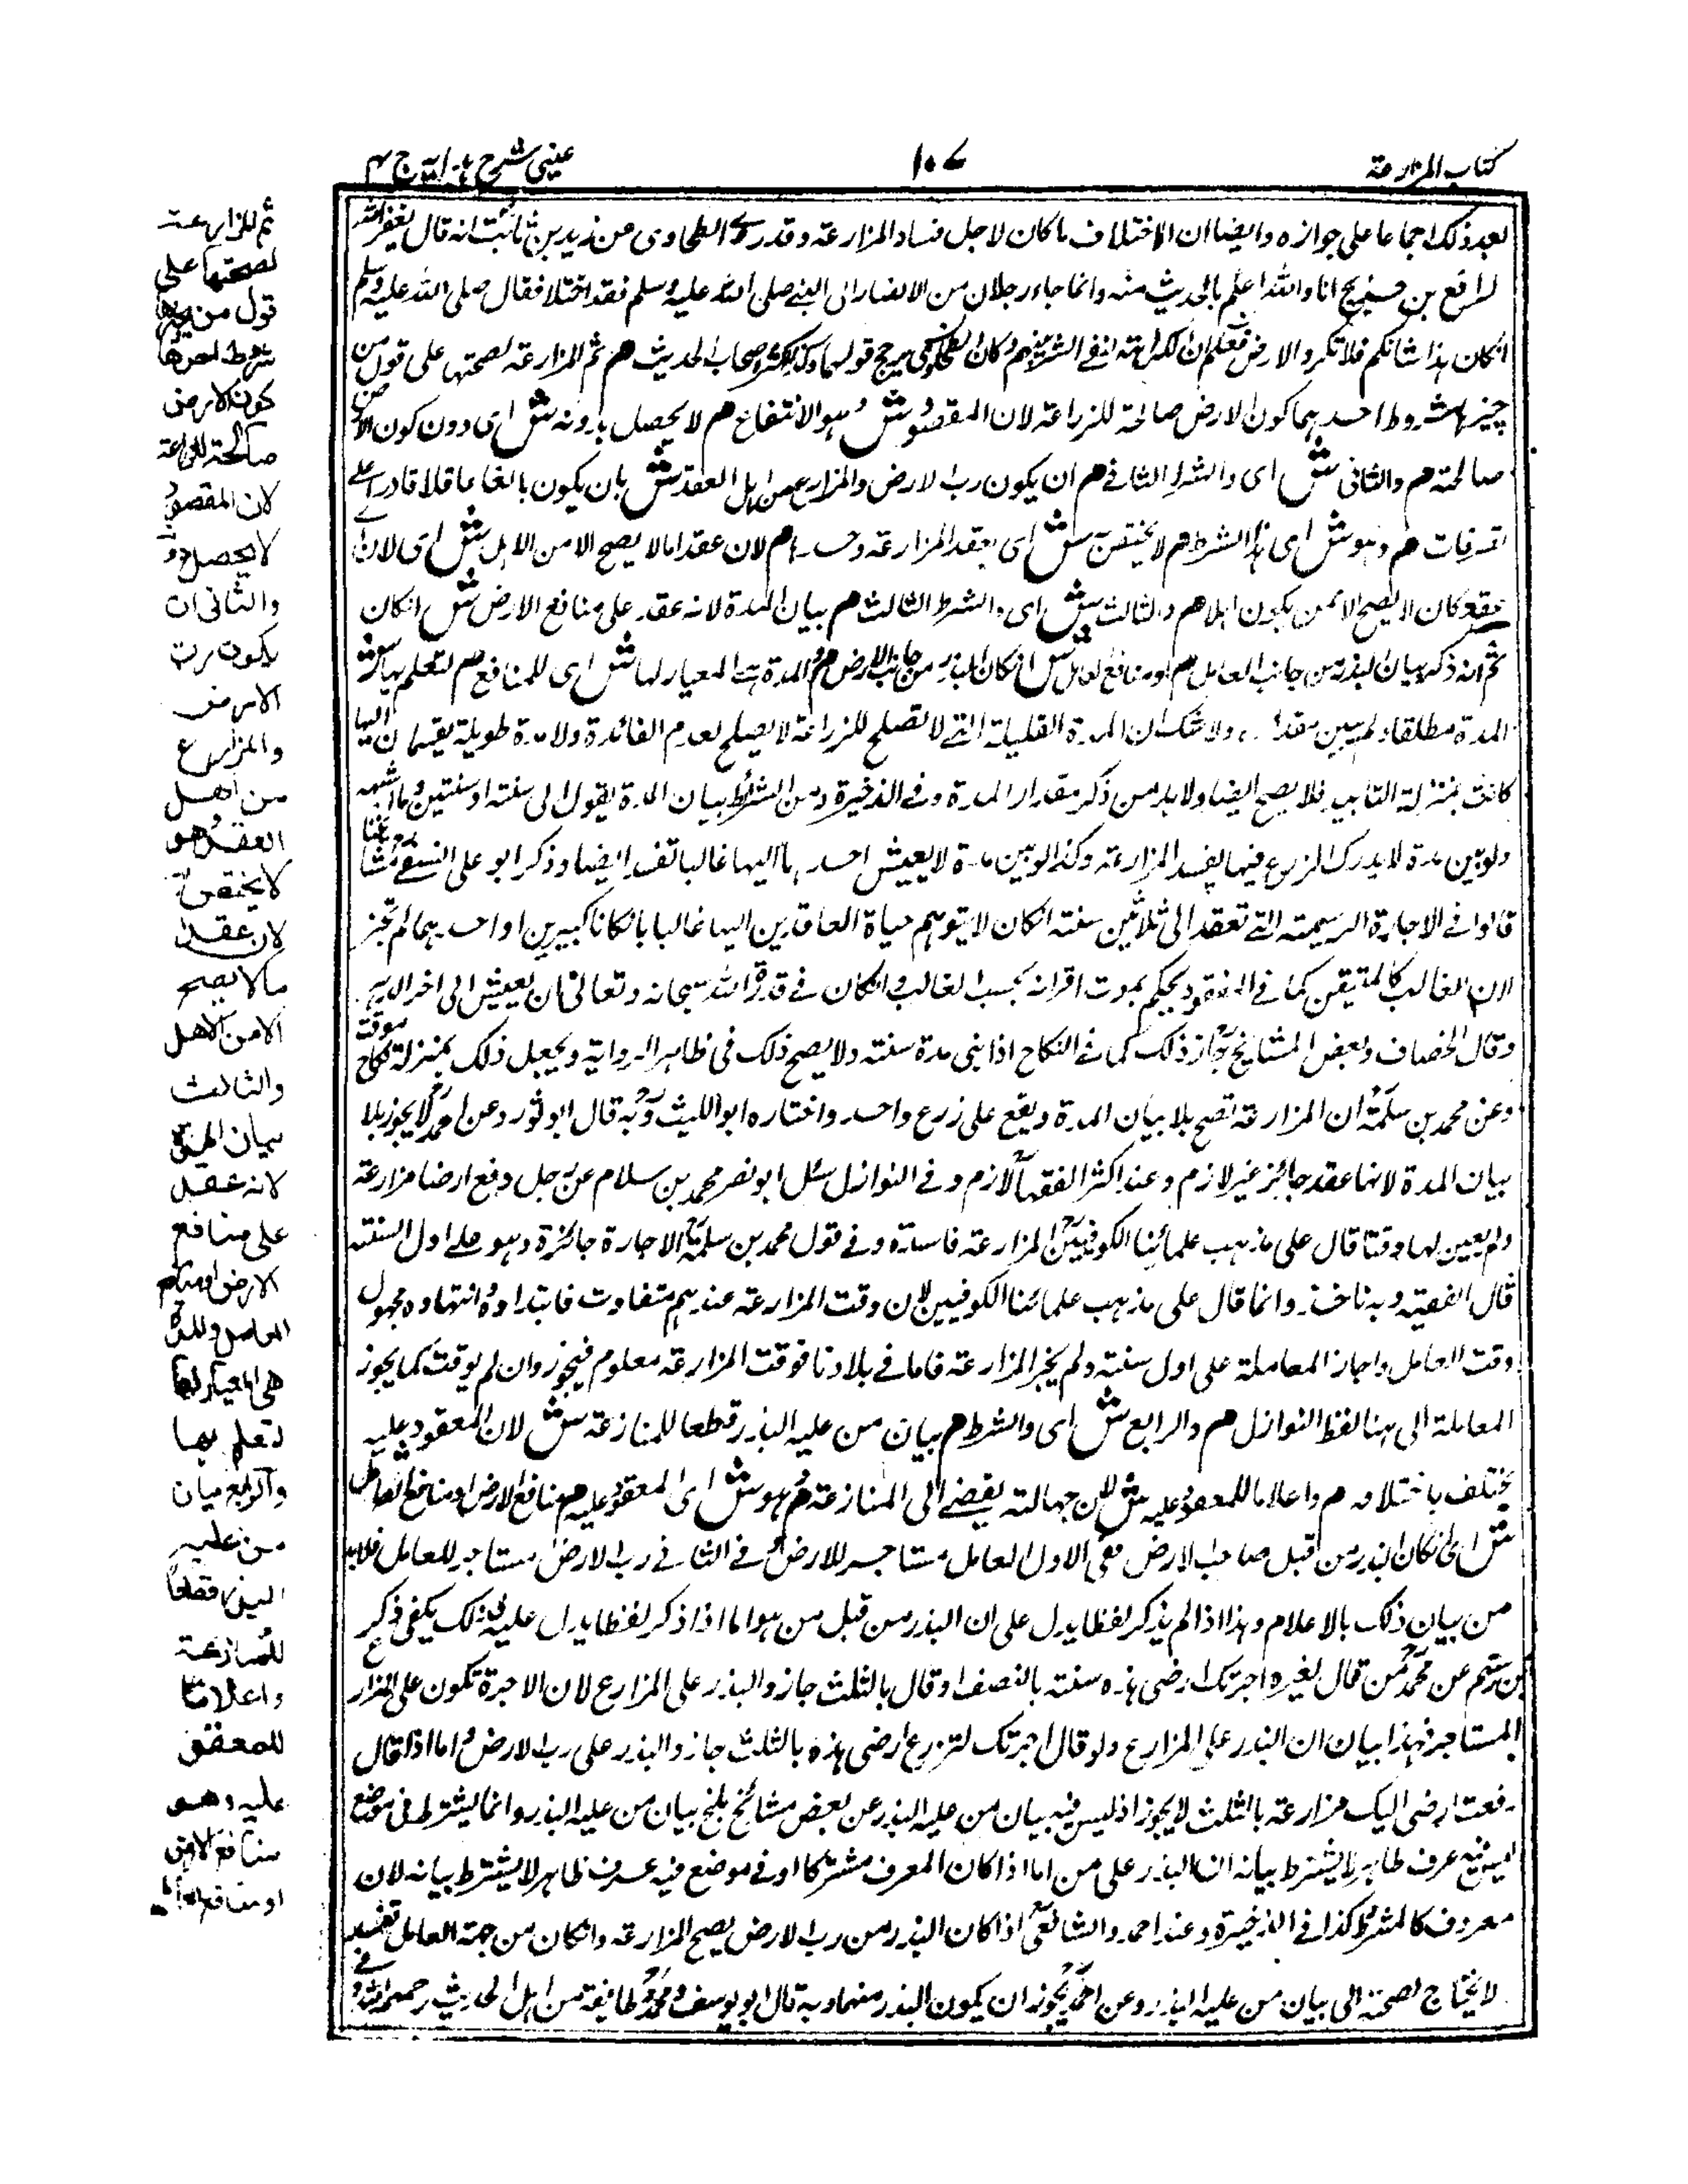 كتاب المزارعة
١٠٧
عيني شرح هداية ج ٣
بعد ذلك اجماعا على جوازه وايضا ان الاختلاف ما كان لاجل فساد المزارعة وقد روى الطحاوى عن زيد بن ثابت انه قال يغفر الله
لرافع بن خديج انا والله اعلم بالحديث منه وانما جاء رجلان من الانصار الى النبي صلى الله عليه وسلم فقد اختلا فقال صلى الله عليه وسلم
انكان هذا شانكم فلا تكروا الارض فعلم ان الكراهة يرجح قولهما وكذلك اكثر اصحاب الحديث هم ثم المزارعة لصحتها على قول من
يجيزها شروط احدهما كون الارض صالحة للزراعة لان المقصود ش وهو الانتفاع هم لا يحصل بدونه ش اى دون كون الارض
صالحة هم والثانى ش اى والشرط الثانى هم ان يكون رب الارض والمزارع من اهل العقد ش بان يكون بالغا عاقلا قادرا على
تصرفات هم وهو ش اى هذا الشرط هم لا يختص ش اى بعقد المزارعة وحدها هم لان عقدا ما لا يصح الا من الاهل ش اى لان اى
عقد كان لا يصح الا ممن يكون اهلا هم والثالث ش اى والشرط الثالث هم بيان المدة لانه عقد على منافع الارض ش انكان
البذر من جانب العامل هم او منافع العامل ش انكان البذر من جانب الارض هم والمدة هى المعيار لها ش اى للمنافع هم لتعلم بها ش
المدة مطلقا ولم يبين مقدارها ولا شك ان المدة القليلة التى لا تصلح للزراعة لا يصلح لعدم الفائدة ولا مدة طويلة
كانت بمنزلة التابيد فلا يصح ايضا ولا بد من ذكر مقدار المدة وفى الذخيرة ومن الشرائط بيان المدة يقول الى سنة او سنتين وما اشبهه
ولو بين مدة لا يدرك الزرع فيها يفسد المزارعة وكذا لو بين مدة لا يعيش احدهما اليها غالبا تفسد ايضا وذكر ابو على النسفى مشائخنا
قالوا فى الاجارة الرسمية التى تعقد الى ثلاثين سنة انكان لا يتوهم حياة العاقدين اليها غالبا بانكانا كبيرين او احدهما لم تجز
لان الغالب كالمتيقن كما فى المفقود يحكم بموت اقرانه بحسب الغالب وانكان فى قدرة الله سبحانه وتعالى ان يعيش الى اخر الدهر
وقال الخصاف وبعض المشايخ جواز ذلك كما فى النكاح اذا بنى مدة سنة ولا يصح ذلك فى ظاهر الرواية ويجعل ذلك بمنزلة نكاح موقت
وعن محمد بن سلمة ان المزارعة تصح بلا بيان المدة ويقع على زرع واحد واختاره ابو الليث وبه قال ابو ثور وعن احمد لا يجوز بلا
بيان المدة لانها عقد جائز غير لازم وعند اكثر الفقهاء لازم وفى النوازل سئل ابو نصر محمد بن سلام عن رجل دفع ارضا مزارعة
ولم يعين لها وقتا قال على مذهب علمائنا الكوفيين المزارعة فاسدة وفى قول محمد بن سلمة الاجارة جائزة وهو على اول السنة
قال الفقيه وبه ناخذ وانما قال على مذهب علمائنا الكوفيين لان وقت المزارعة عندهم متفاوت فابتداوه وانتهاوه مجهول
وقت العامل واجاز المعاملة على اول سنة ولم يجز المزارعة فاما فى بلادنا فوقت المزارعة معلوم فيجوز وان لم يوقت كما يجوز
المعاملة الى هنا لفظ النوازل هم والرابع ش اى والشرط هم بيان من عليه البذر قطعا للمنازعة ش لان المعقود عليه
يختلف باختلافه هم واعلاما للمعقود عليه ش لان جهالته يفضى الى المنازعة هم وهو ش اى المعقود عليه هم منافع الارض او منافع العامل
ش اى انكان البذر من قبل صاحب الارض ففى الاول العامل مستاجر للارض وفى الثانى رب الارض مستاجر للعامل فلا بد
من بيان ذلك بالاعلام وهذا اذا لم يذكر لفظا يدل على ان البذر من قبل من هو اما اذا ذكر لفظا يدل عليه ذلك يكفى ذكر
بن رستم عن محمد من قال لغيره اجرتك ارضى هذه سنة بالنصف او قال بالثلث جاز والبذر على المزارع لان الاجرة تكون على المزارع
المستاجر فهذا بيان ان البذر على المزارع ولو قال اجرتك لتزرع ارضى هذه بالثلث جاز والبذر على رب الارض واما اذا قال
دفعت ارضى اليك مزارعة بالثلث لا يجوز اذ ليس فيه بيان من عليه البذر عن بعض مشائخ بلخ بيان من عليه البذر وانما يشترط فى موضع
ليس فيه عرف ظاهر لا يشترط بيانه ان البذر على من اما اذا كان المعرف مشتركا او فى موضع فيه عرف ظاهر لا يشترط بيانه لان
معروف كالمشروط كذا فى الذخيرة وعند احمد والشافعى اذا كان البذر من رب الارض يصح المزارعة وانكان من جهة العامل تفسد
لا يحتاج لصحته الى بيان من عليه البذر وعن احمد يجوز ان يكون البذر منهما وبه قال ابو يوسف ومحمد وطايفة من اهل الحديث رحمهم الله
ثم المزارعة
لصحتها على
قول من يجيزها
شروط احدها
كون الارض
صالحة للزراعة
لان المقصود
لا يحصل دونه
والثانى ان
يكون رب
الارض
والمزارع
من اهل
العقد وهو
لا يختص
لان عقدا
ما لا يصح
الا من الاهل
والثالث
بيان المدة
لانه عقد
على منافع
الارض او منافع
العامل والمدة
هى المعيار لها
لتعلم بها
والرابع بيان
من عليه
البذر قطعا
للمنازعة
واعلاما
للمعقود
عليه وهو
منافع الارض
او منافع العامل